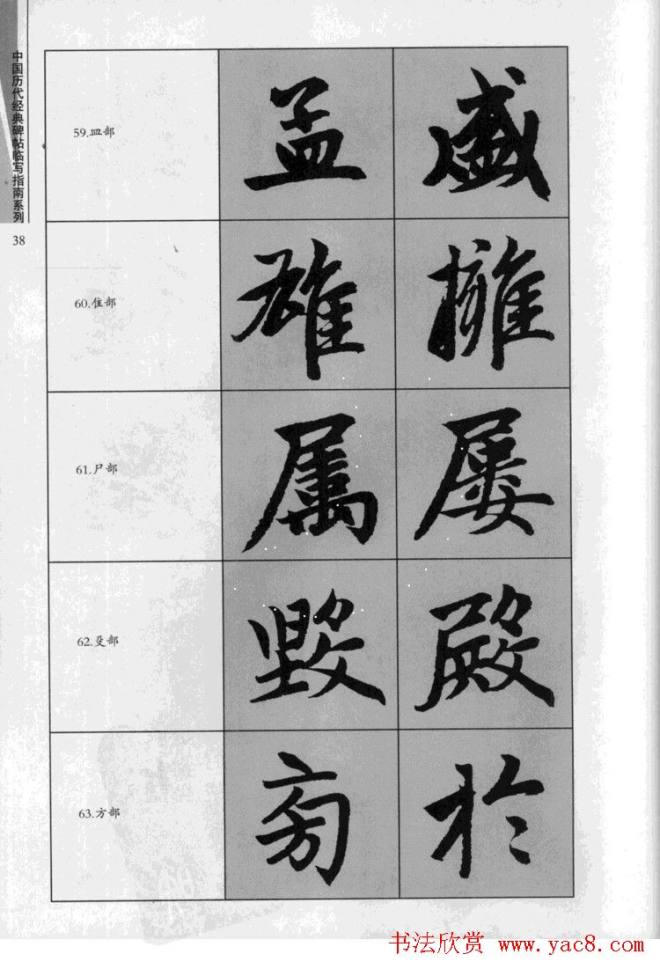 中国历代经典碑帖临写指南系列
38
59.皿部 孟 盛
60.隹部 雄 擁
61.尸部 属 屡
62.殳部 毁 殿
63.方部 旁 於
书法欣赏 www.yac8.com